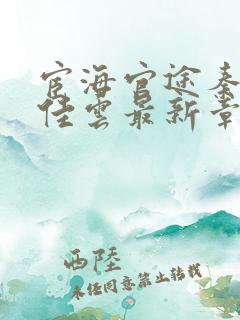 宦海官途秦
佳雲最新章
西陸
未经同意禁止转载